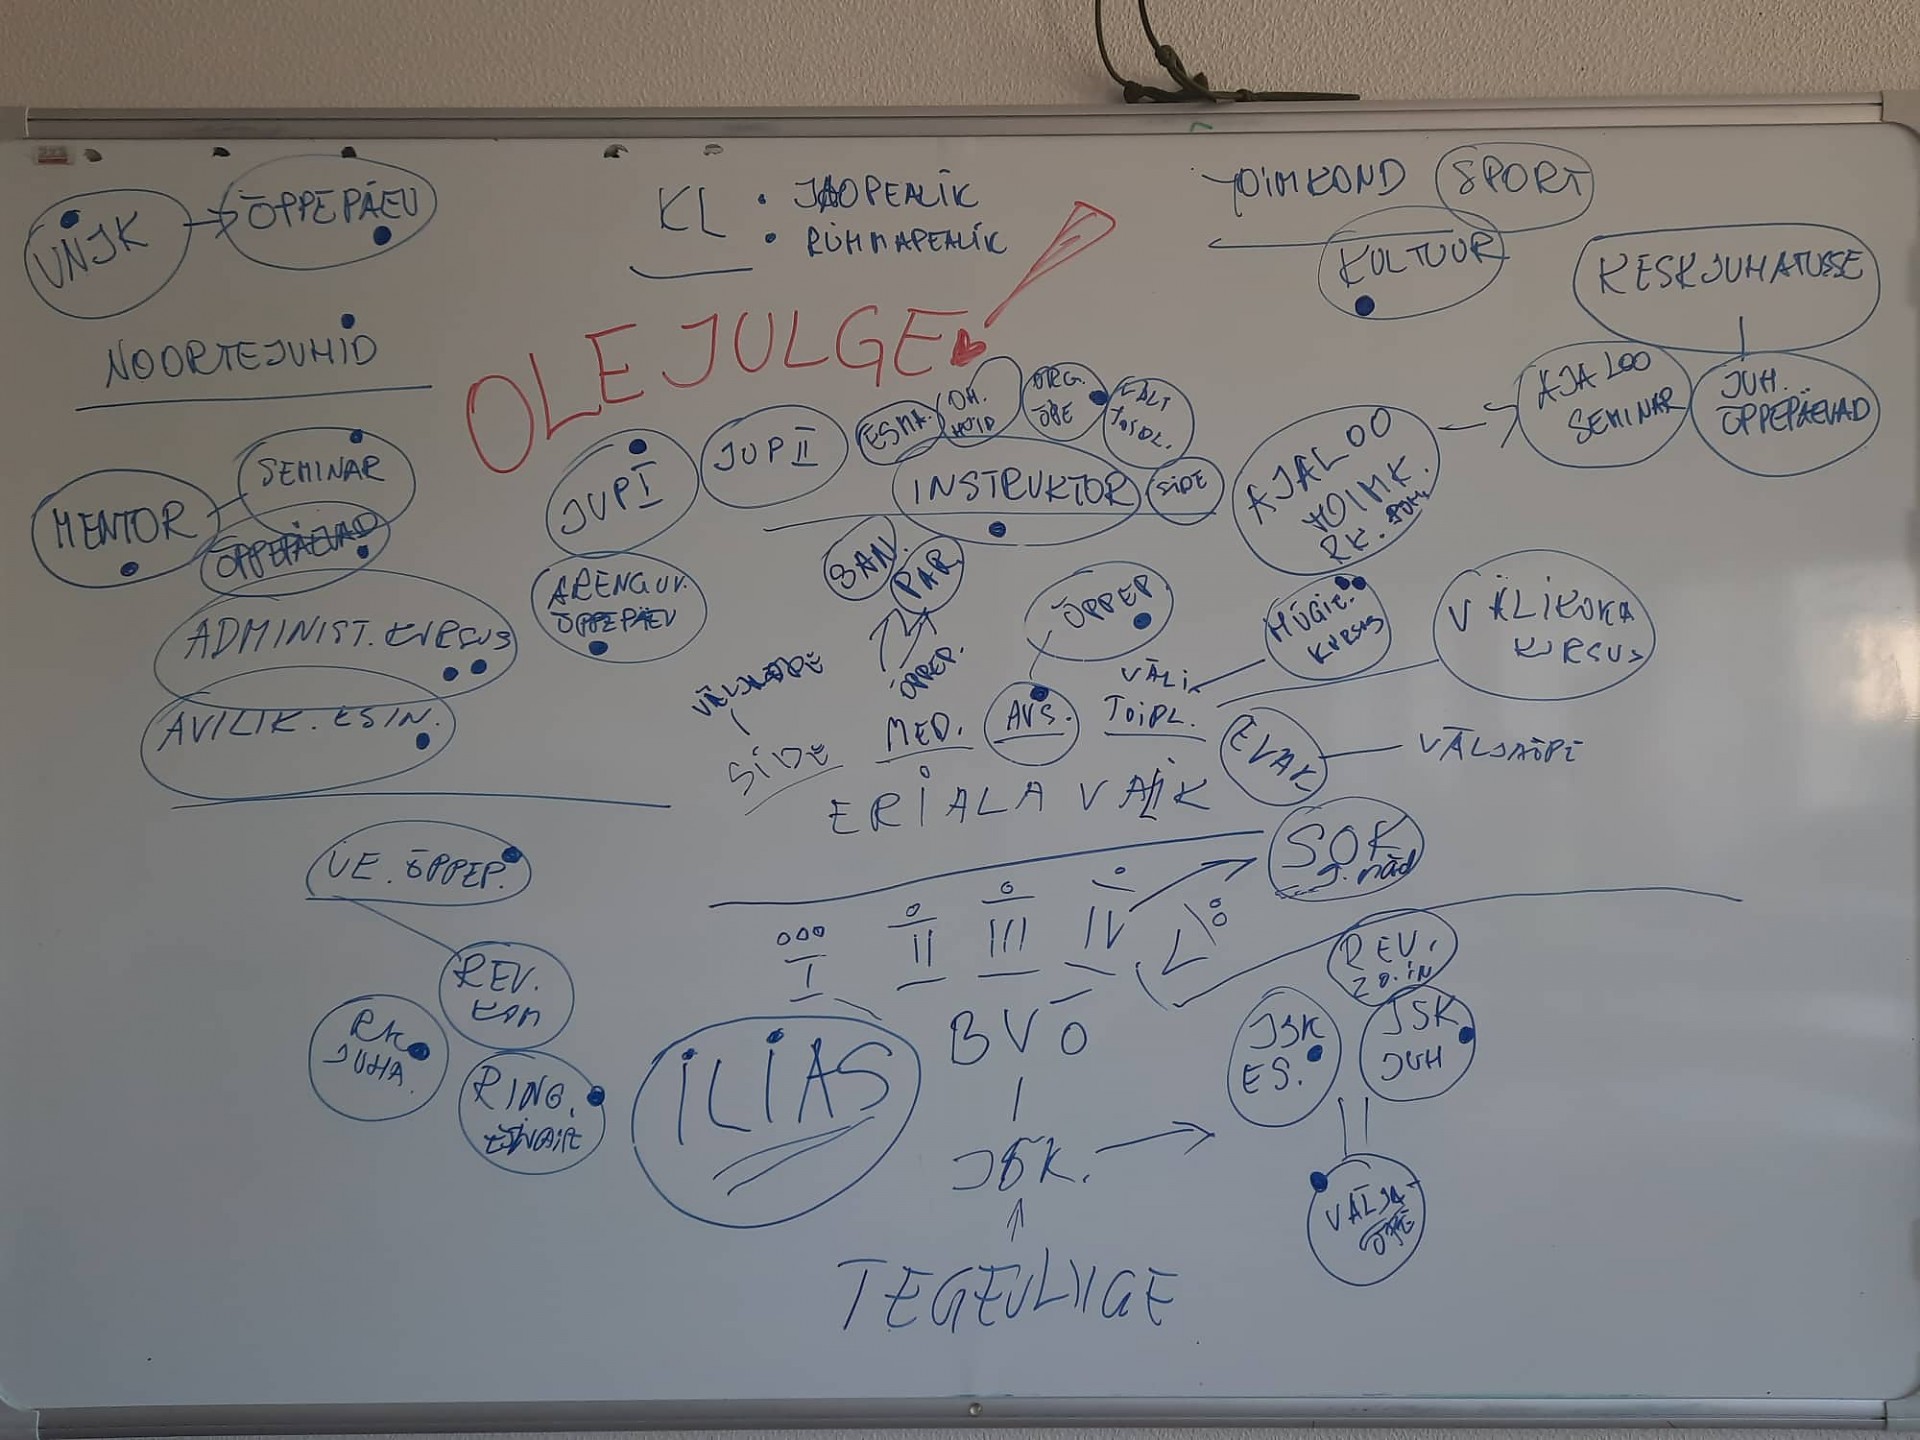 VNJK
ÕPPEPÄEV
KL
• JAOPEALIK
• RÜHMAPEALIK
TOIMKOND
SPORT
KULTUUR
KESKJUHATUSSE
NOORTEJUHID
OLE JULGE!
AJALOO
SEMINAR
JUH.
ÕPPEPÄEVAD
MENTOR
SEMINAR
ÕPPEPÄEVAD
JUP I
JUP II
ESMA.
ORG.
ÕPE
VÄLI
TOIDL.
INSTRUKTOR
SIDE
AJALOO
TOIMK.
RK.
SAN.
PAR.
ARENGUV.
ÕPPEPÄEV
ÕPPEP.
HÜGIE.
KURSUS
VÄLIKOKA
KURSUS
ADMINIST. KURSUS
AVILIK. ESIN.
VÄLJAÕPE
ÕPPEP.
SIDE
MED.
AVS.
VÄLI
TOIDL.
EVAK.
VÄLJAÕPE
ERIALA VALIK
SOK
J. NÄD
VE. ÕPPEP.
I
II
III
IV
V
REV.
KOM
RK
JUHA.
RING.
ILIAS
BVÕ
REV.
JSK
ES.
JSK
JUH
JSK.
VÄLJA-
ÕPE
TEGEVLIIGE